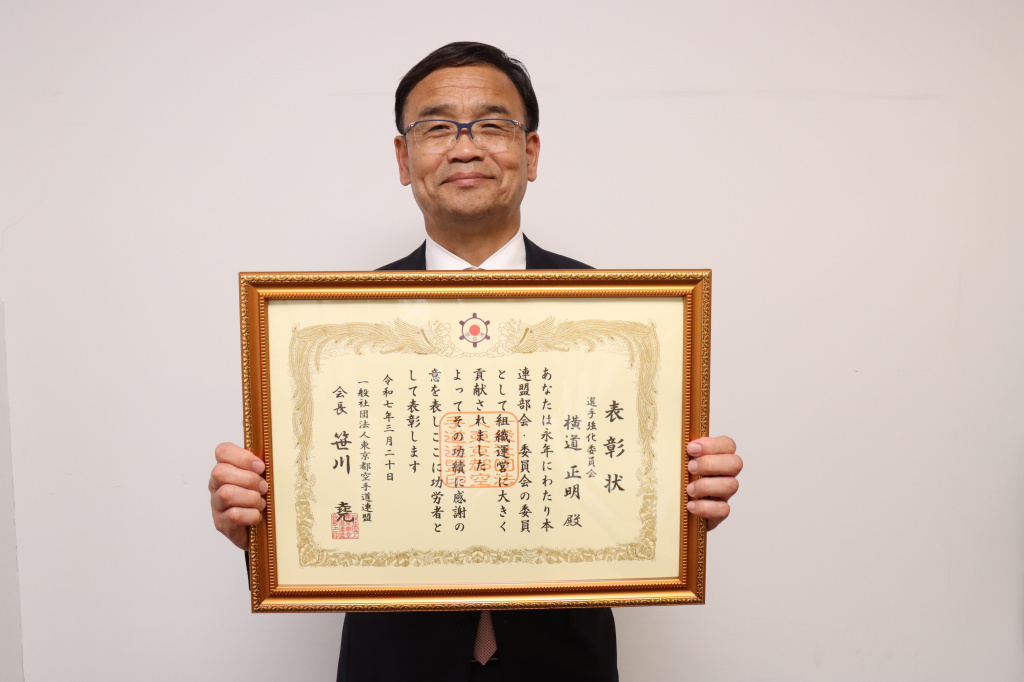 表彰状
選手強化委員会
横道正明 殿
あなたは永年にわたり本
連盟部会・委員会の委員
として組織運営に大きく
貢献されました
よってその功績に感謝の
意を表しここに功労者と
して表彰します
令和七年三月二十日
一般社団法人東京都空手道連盟
会長 笹川 堯